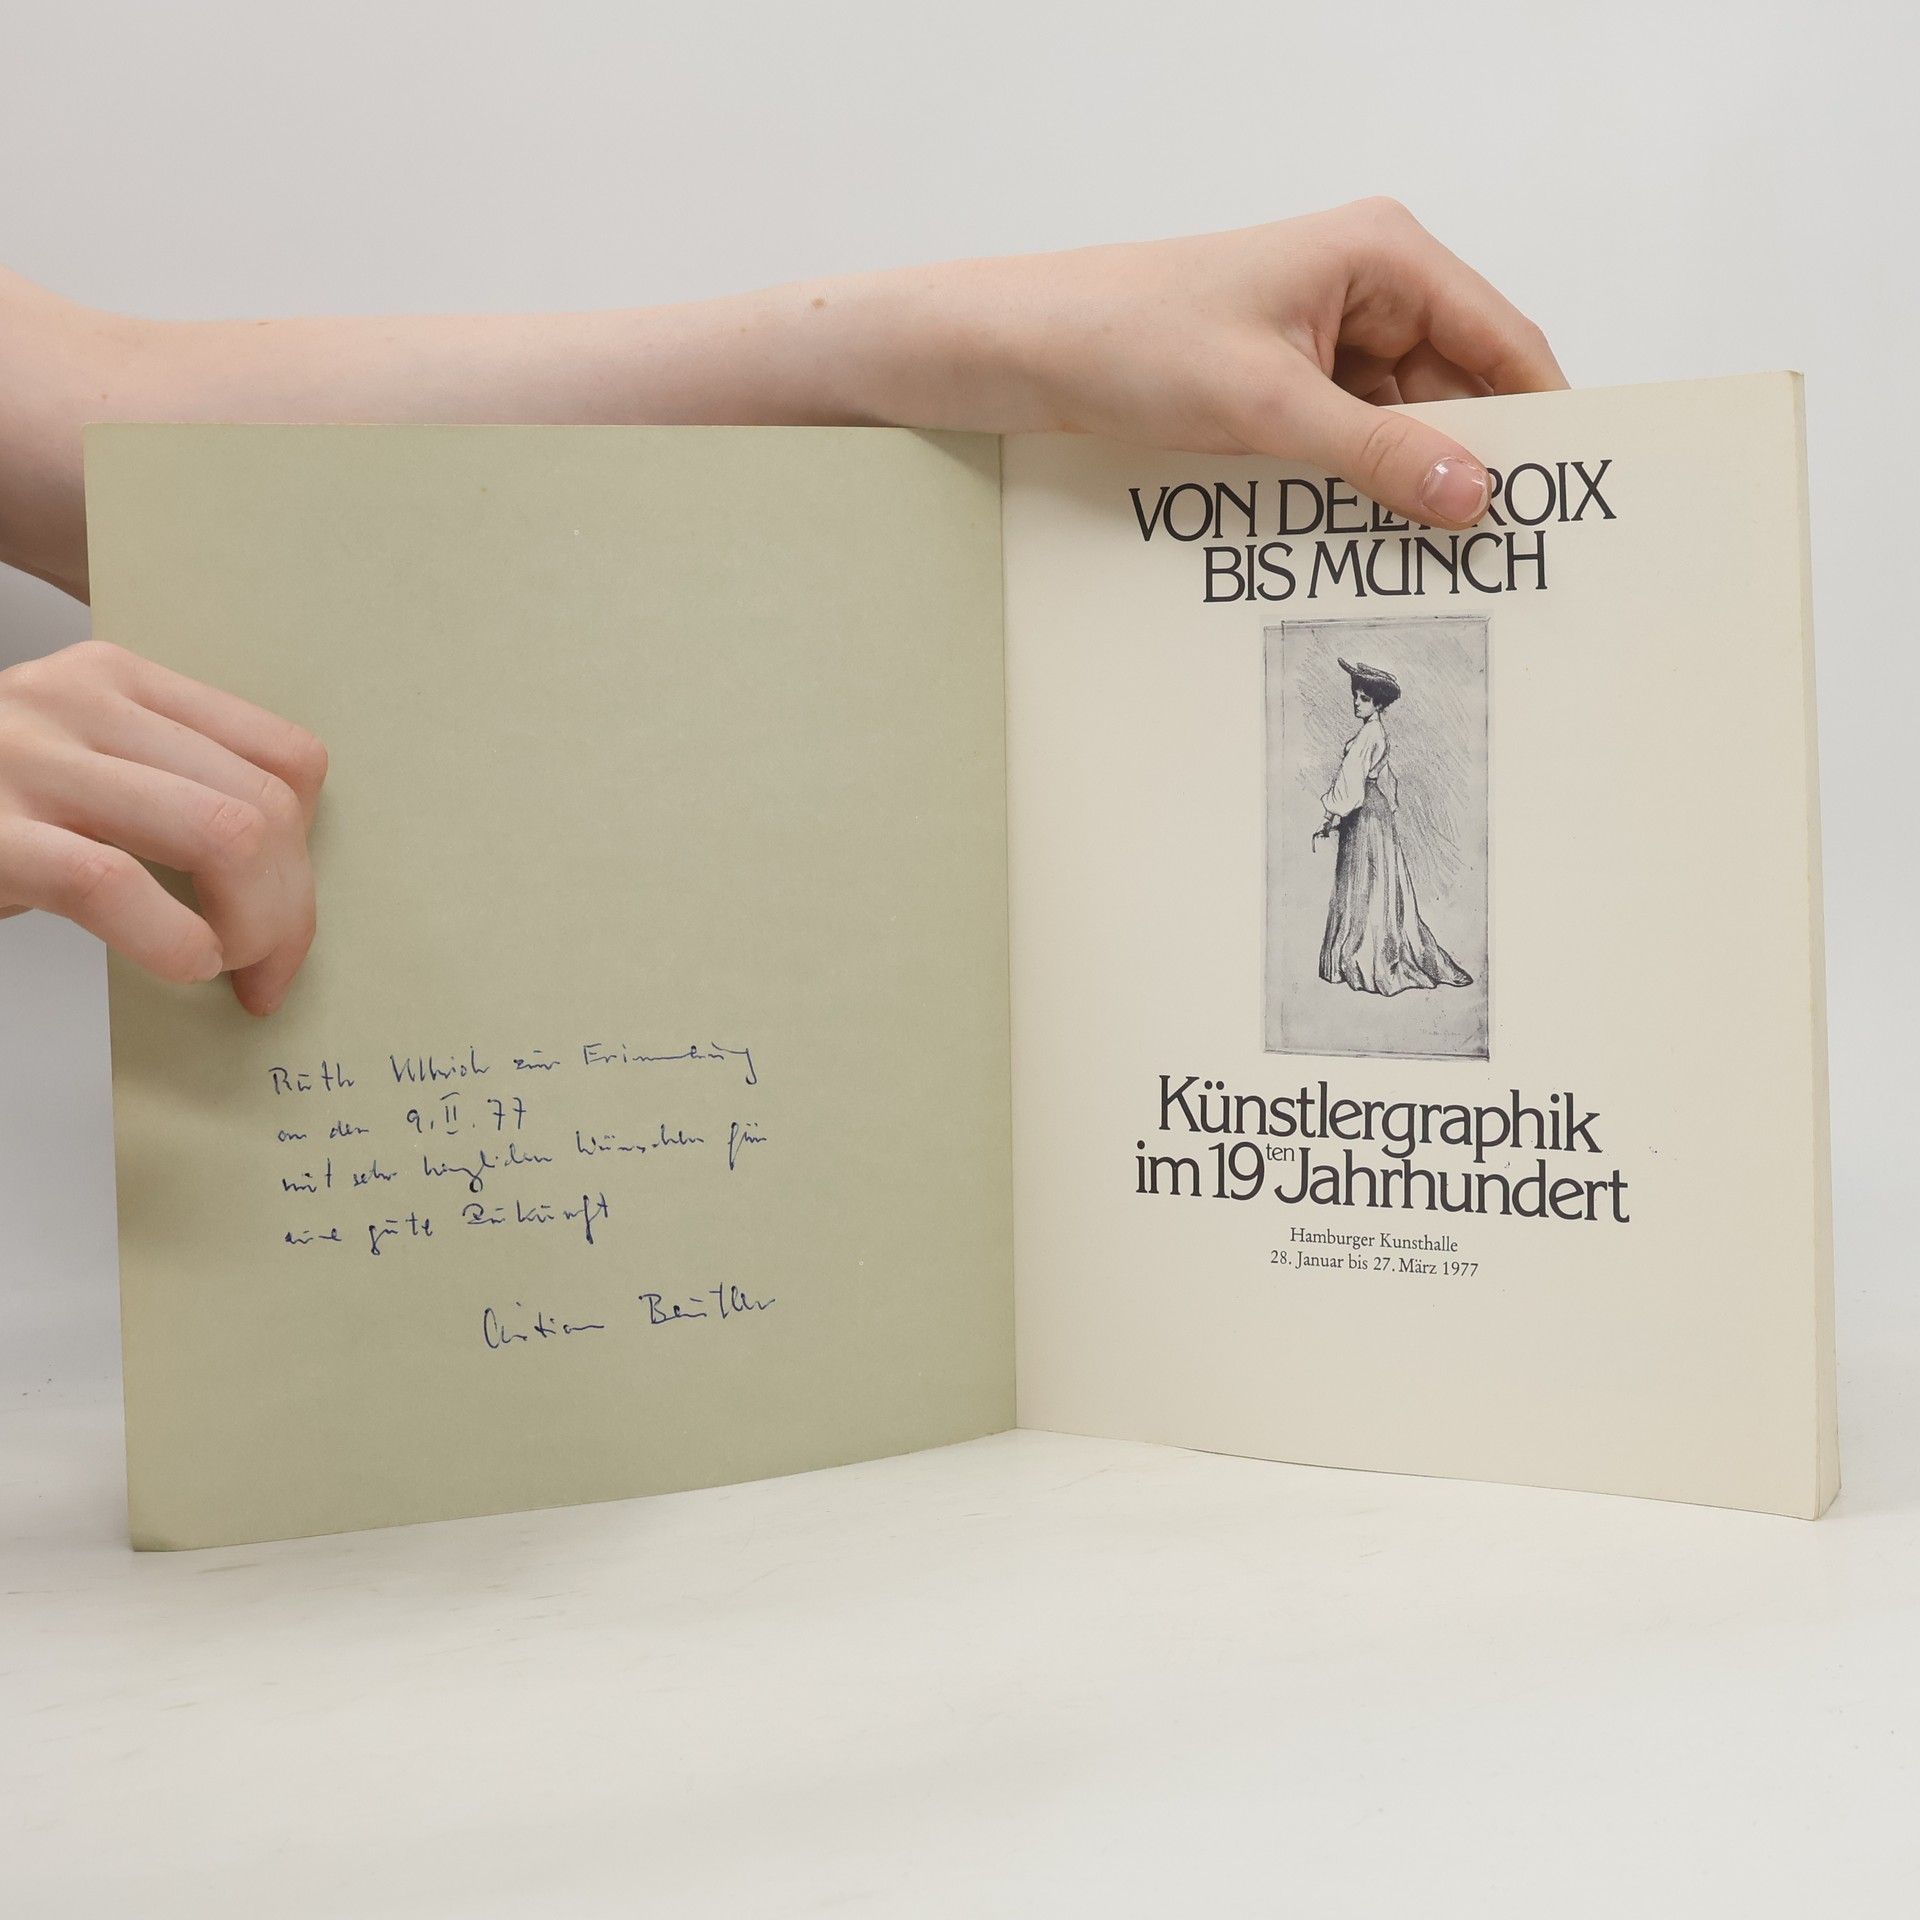 Ruth Ullrich zur Erinnerung
an den 9. II. 77
mit sehr herzlichen Wünschen für
eine gute Zukunft
Christian Beutler
VON DELA ROIX
BIS MUNCH
Künstlergraphik
im 19ten Jahrhundert
Hamburger Kunsthalle
28. Januar bis 27. März 1977